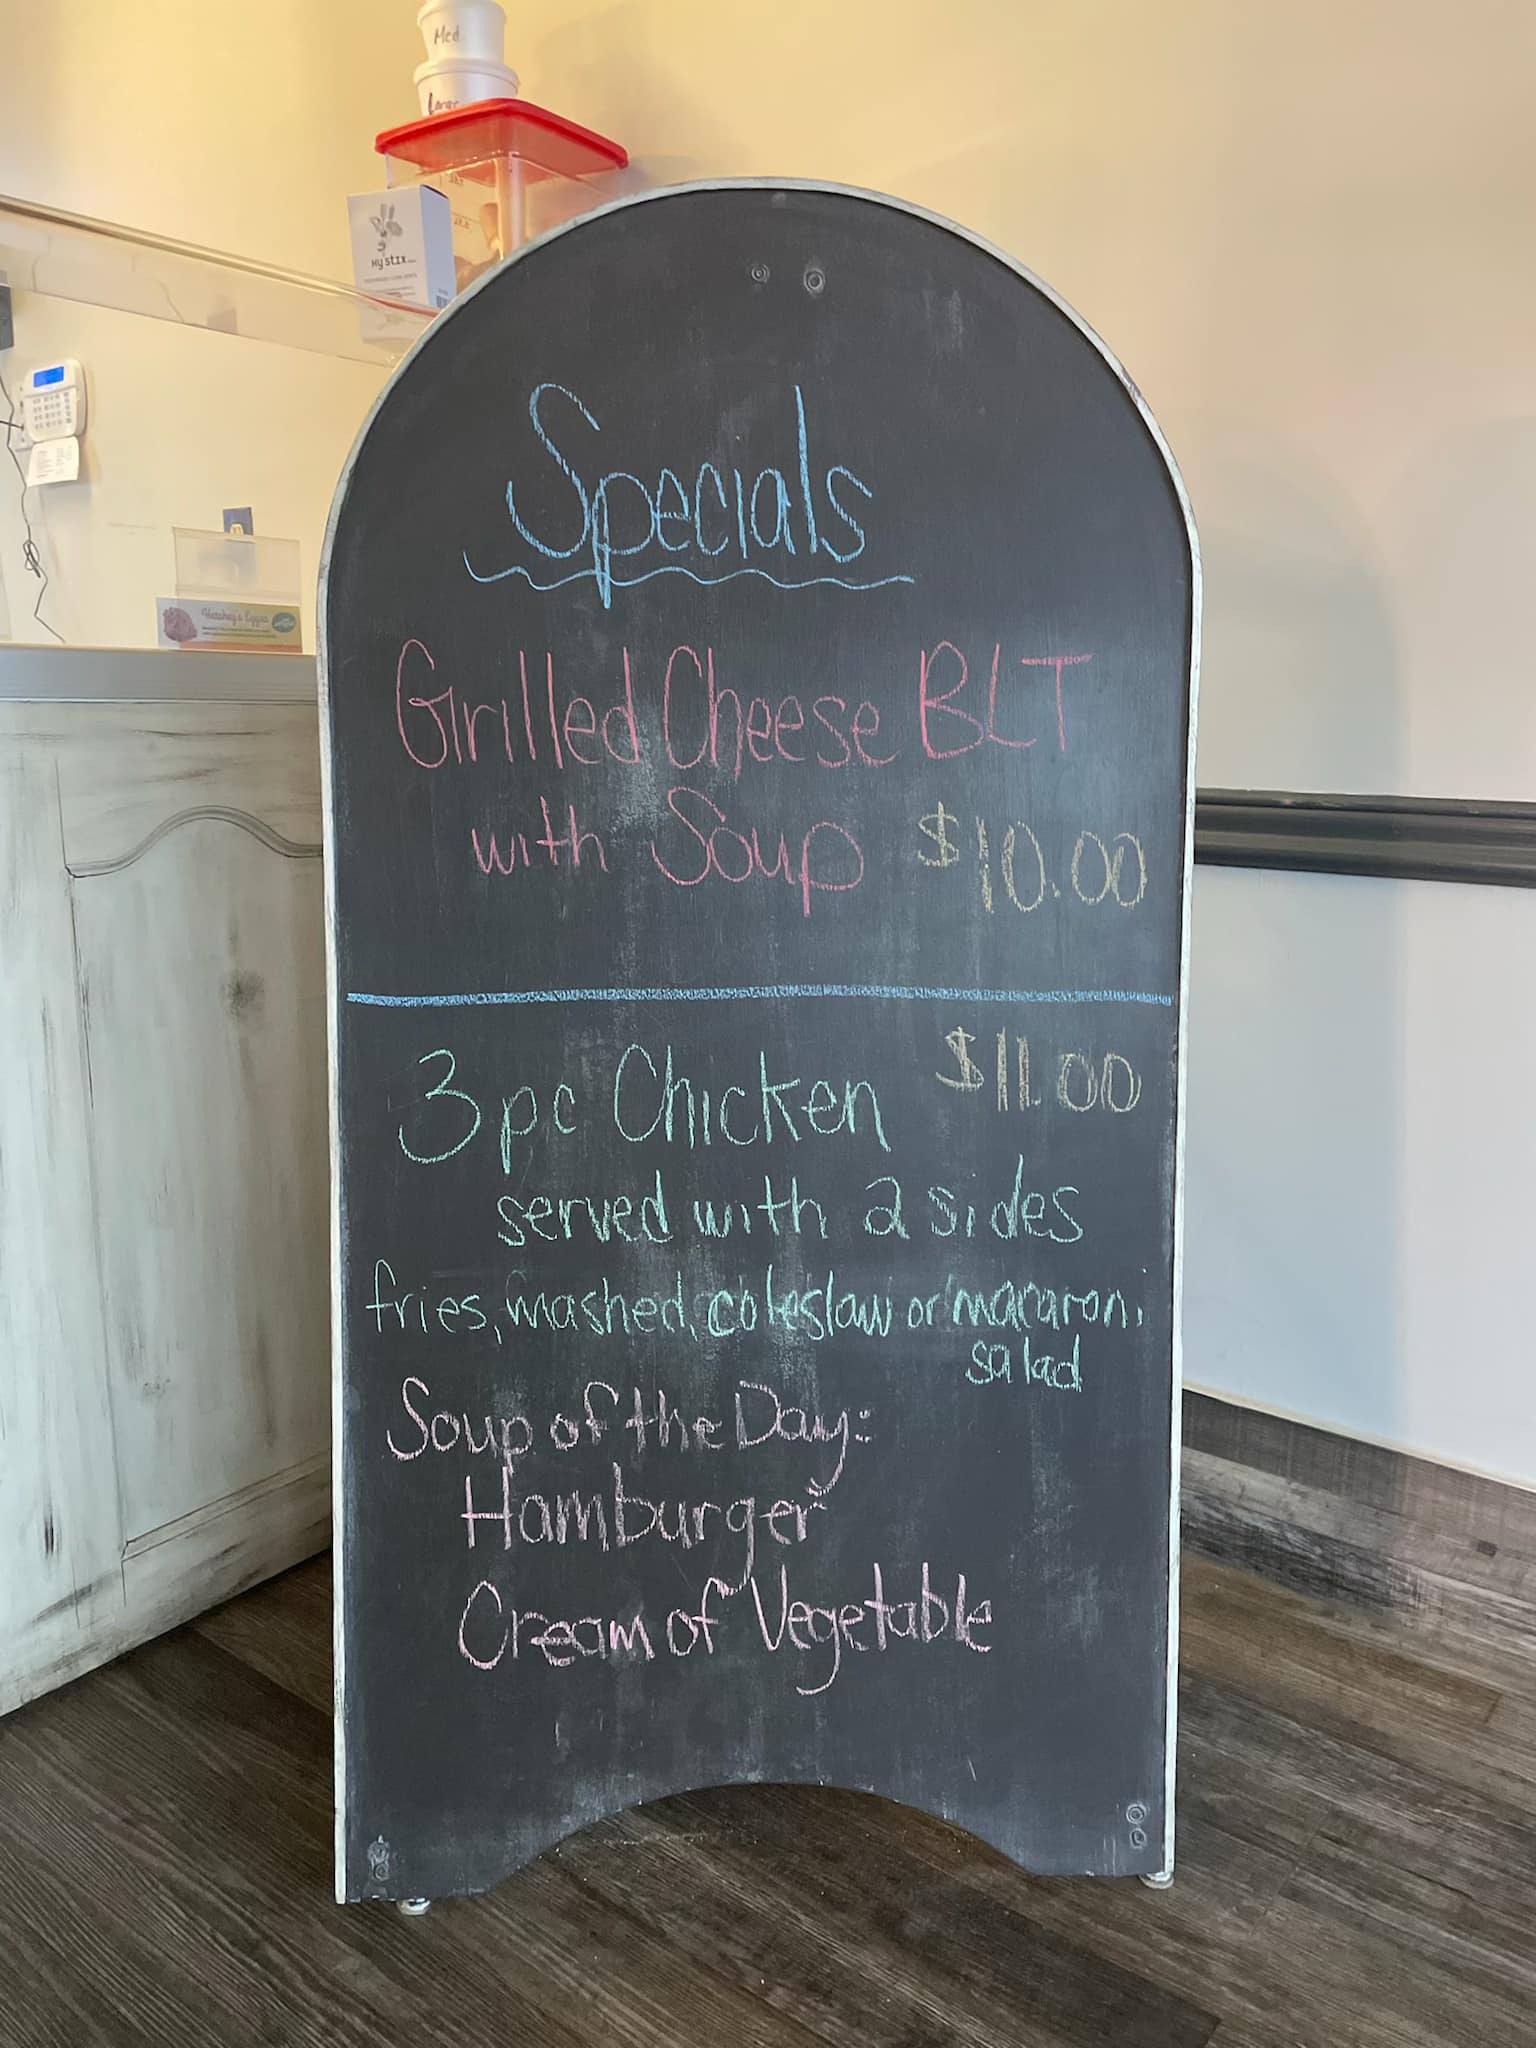 Med
Large
Hy stix
Specials
Grilled Cheese BLT
with Soup $10.00
3 pc Chicken $11.00
served with 2 sides
fries, mashed, coleslaw or macaroni
salad
Soup of the Day:
Hamburger
Cream of Vegetable